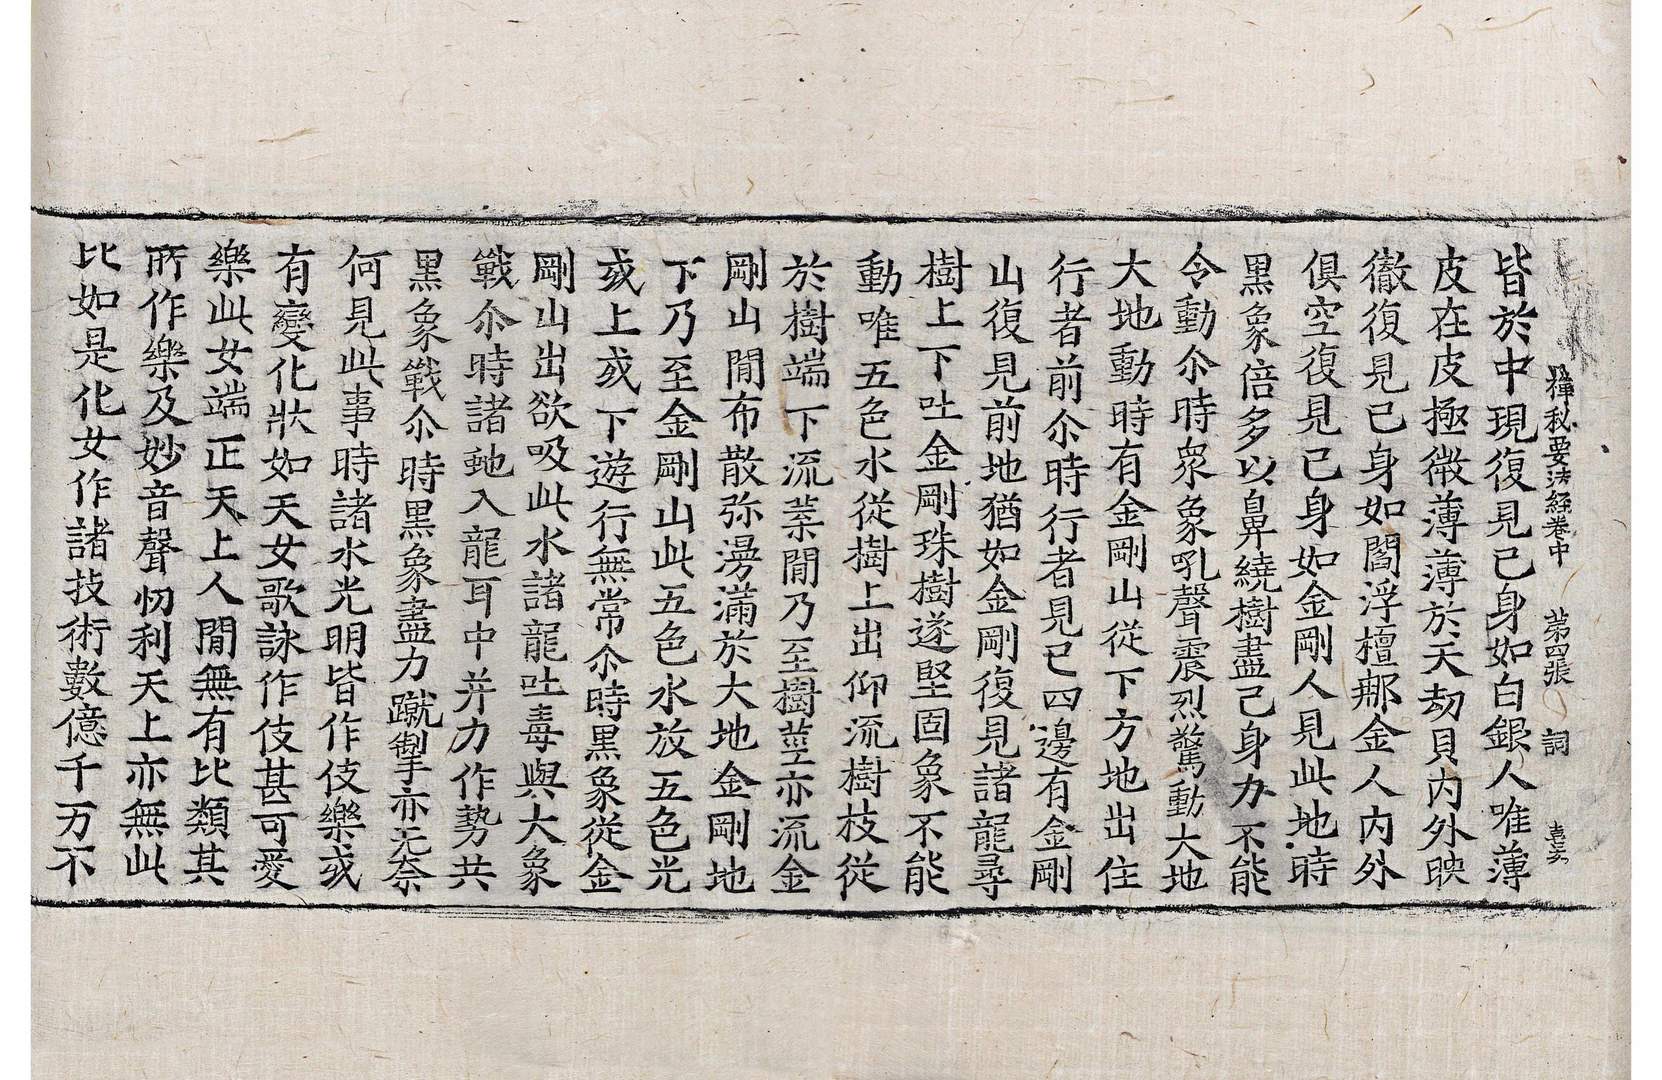 禪秘要法経卷中 第四張 詞
皆於中現復見己身如白銀人唯薄
皮在皮極微薄薄於天劫貝內外映
徹復見己身如閻浮檀那金人內外
俱空復見己身如金剛人見此地時
黑象倍多以鼻繞樹盡己身力不能
令動尒時衆象吼聲震烈驚動大地
大地動時有金剛山從下方地出住
行者前尒時行者見已四邊有金剛
山復見前地猶如金剛復見諸龍尋
樹上下吐金剛珠樹遂堅固象不能
動唯五色水從樹上出仰流樹枝從
於樹端下流葉閒乃至樹莖亦流金
剛山閒布散弥滿於大地金剛地
下乃至金剛山此五色水放五色光
或上或下遊行無常尒時黑象從金
剛山出欲吸此水諸龍吐毒與大象
戰尒時諸虵入龍耳中并力作勢共
黑象戰尒時黑象盡力蹴掣亦无奈
何見此事時諸水光明皆作伎樂或
有變化狀如天女歌詠作伎甚可愛
樂此女端正天上人閒無有比類其
所作樂及妙音聲忉利天上亦無此
比如是化女作諸技術數億千万不